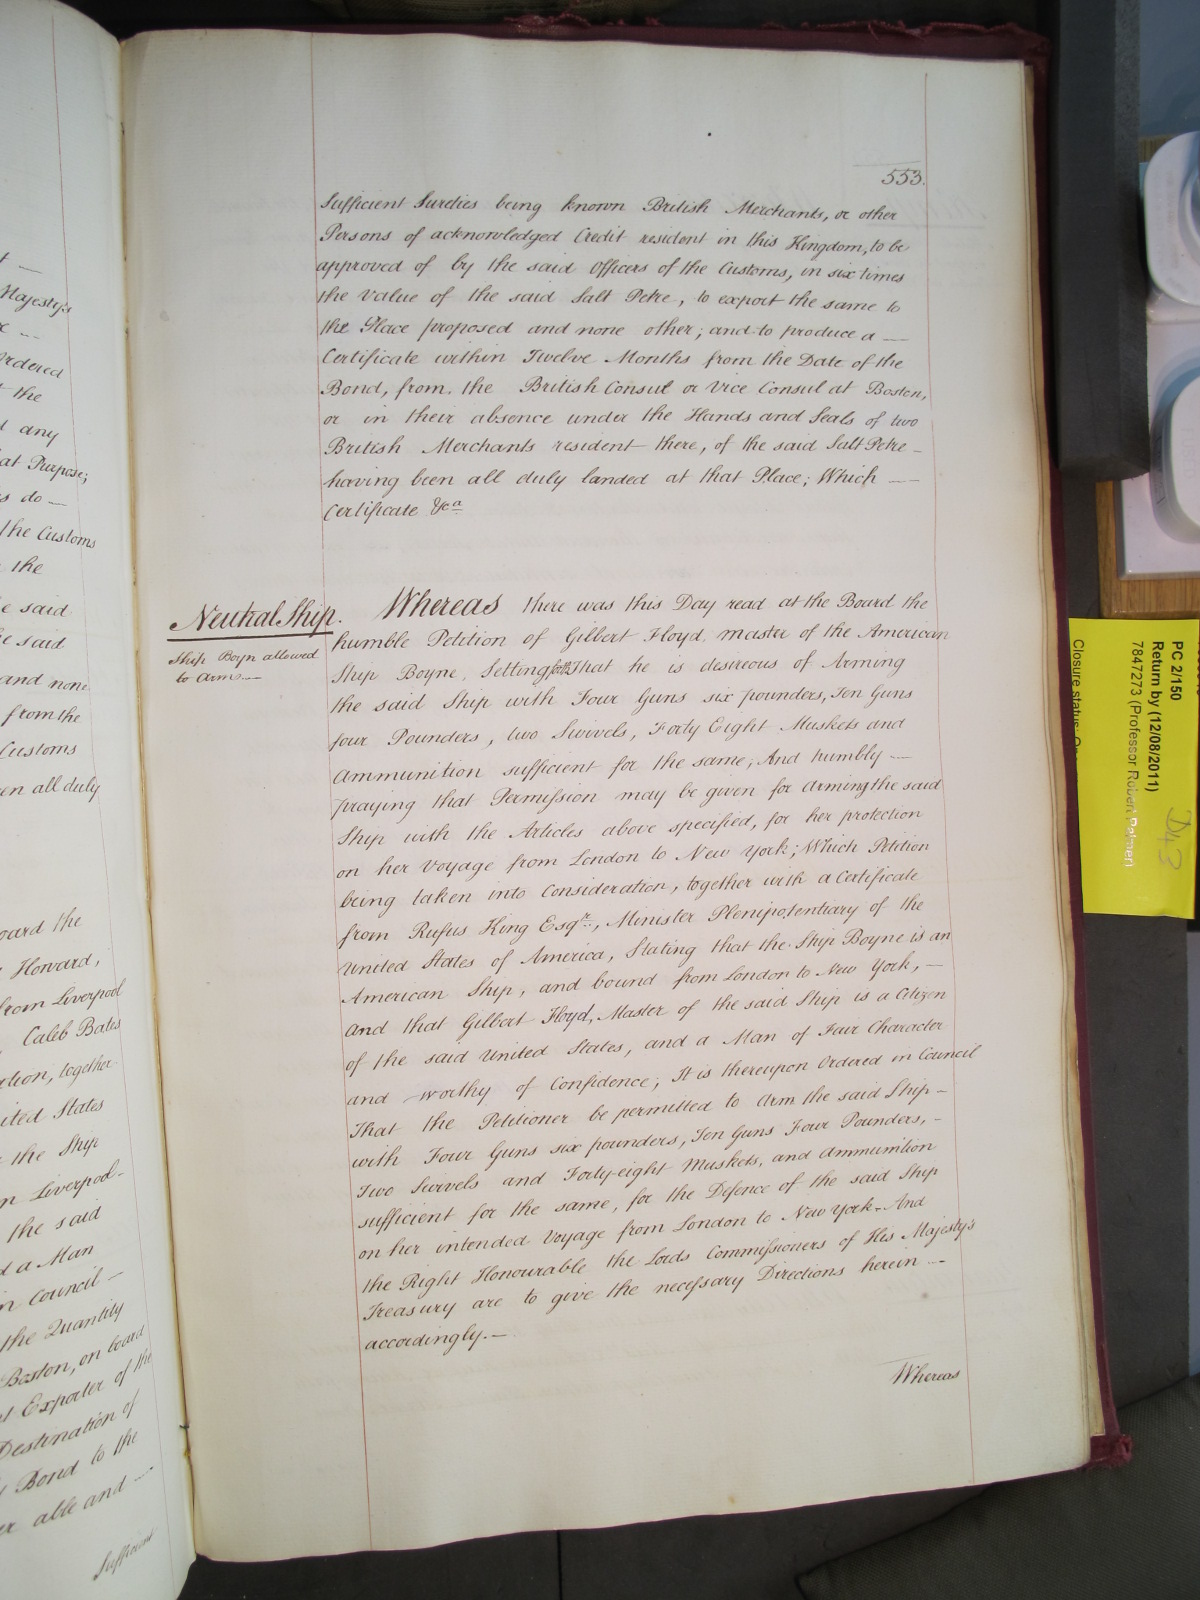 t —
Majesty's
rdered
t the
d any
at Purpose;
s do —
the Customs
the
e said
he said
and none
from the
Customs
en all duly
oard the
Howard,
from Liverpool
Caleb Bates
ation, together
ited States
the Ship
m Liverpool-
the said
d a Man
in Council —
the Quantity
Boston, on board
t Exporter of the
Destination of
Bond to the
er able and —
Sufficient
553.
Sufficient Sureties being known British Merchants, or other
Persons of acknowledged Credit resident in this Kingdom, to be
approved of by the said Officers of the Customs, in six times
the Value of the said Salt Petre, to export the same to
the Place proposed and none other; and to produce a —
Certificate within Twelve Months from the Date of the
Bond, from the British Consul or Vice Consul at Boston,
or in their absence under the Hands and Seals of two
British Merchants resident there, of the said Salt Petre —
having been all duly landed at that Place; Which —
Certificate &ca
Neutral Ship.
Ship Boyn allowed
to Arm —
Whereas there was this Day read at the Board the
humble Petition of Gilbert Floyd, master of the American
Ship Boyne, Setting forth That he is desireous of Arming
the said Ship with Four Guns six pounders, Ten Guns
four Pounders, two Swivels, Forty Eight Muskets and
Ammunition sufficient for the same; And humbly —
praying that Permission may be given for Arming the said
Ship with the Articles above specified, for her protection
on her Voyage from London to New York; Which Petition
being taken into Consideration, together with a Certificate
from Rufus King Esqr., Minister Plenipotentiary of the
United States of America, Stating that the Ship Boyne is an
American Ship, and bound from London to New York, —
And that Gilbert Floyd, Master of the said Ship is a Citizen
of the said United States, and a Man of Fair Character
and worthy of Confidence; It is thereupon Ordered in Council
That the Petitioner be permitted to Arm the said Ship —
with Four Guns six pounders, Ten Guns Four Pounders, —
Two Swivels and Forty-eight Muskets, and Ammunition
sufficient for the same, for the Defence of the said Ship
on her intended Voyage from London to New York. And
the Right Honourable the Lords Commissioners of His Majesty's
Treasury are to give the necessary Directions herein —
accordingly. —
Whereas
PC 2/150
Return by (12/08/2011)
7847273 (Professor Robert Palmer)
Closure status:
D43